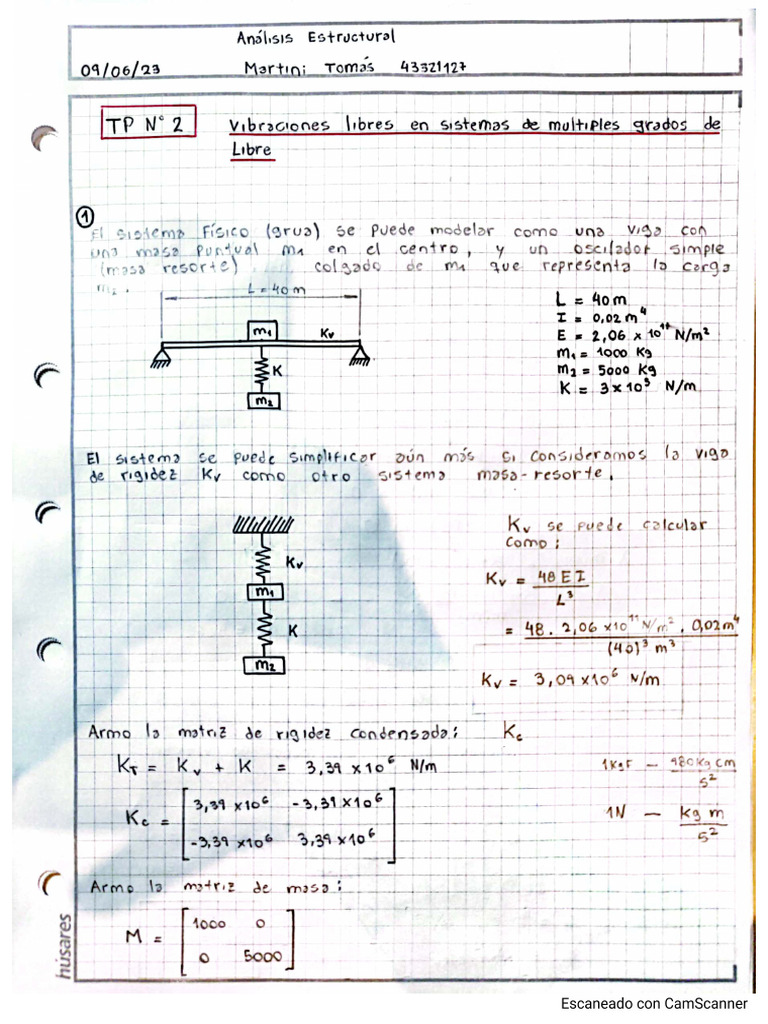 Análisis Estructural
09/06/23 Martini Tomás 43321127
TP N° 2 Vibraciones libres en sistemas de multiples grados de
Libre
1
El sistema Físico (grua) se puede modelar como una viga con
una masa puntual m1 en el centro, y un oscilador simple
(masa resorte) colgado de m1 que representa la carga
m2.
L = 40 m
m1 Kv
K
m2
L = 40 m
I = 0,02 m⁴
E = 2,06 x 10¹¹ N/m²
m1 = 1000 Kg
m2 = 5000 Kg
K = 3 x 10⁵ N/m
El sistema se puede simplificar aún más si consideramos la viga
de rigidez Kv como otro sistema masa-resorte.
Kv
m1
K
m2
Kv se puede calcular
como:
Kv = 48 E I / L³
= 48 . 2,06 x10¹¹ N/m² . 0,02 m⁴ / (40)³ m³
Kv = 3,09 x10⁶ N/m
Armo la matriz de rigidez condensada: Kc
KT = Kv + K = 3,39 x10⁶ N/m
1Kgf — 980 kg cm / s²
Kc = [ 3,39 x10⁶ -3,39 x10⁶
-3,39 x10⁶ 3,39 x10⁶ ]
1N — kg m / s²
Armo la matriz de masa:
M = [ 1000 0
0 5000 ]
húsares
Escaneado con CamScanner